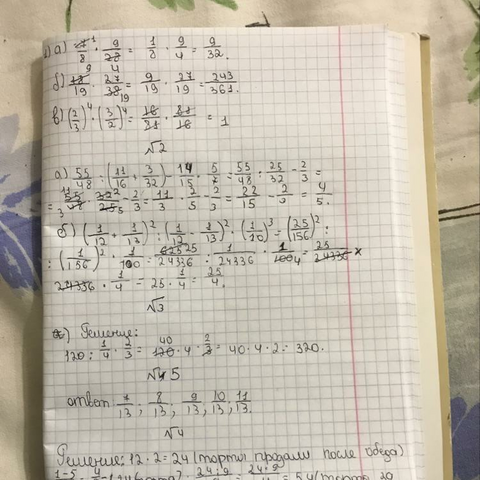 а) 7/8 · 9/28 = 1/8 · 9/4 = 9/32.
б) 18/19 · 27/38 = 9/19 · 27/19 = 243/361.
в) (2/3)^4 · (3/2)^4 = 16/81 · 81/16 = 1
√2
а) 55/48 : (11/16 + 3/32) - 14/15 · 5/7 = 55/48 : 25/32 - 2/3 =
= 55/48 · 32/25 - 2/3 = 11/3 · 2/5 - 2/3 = 22/15 - 2/3 = 4/5.
б) (1/12 + 1/13)^2 : (1/12 - 1/13)^2 · (1/10)^3 = (25/156)^2 :
: (1/156)^2 · 1/100 = 625/24336 : 1/24336 · 1/100 = 25/24336 ×
24336 · 1/4 = 25 · 1/4 = 25/4.
√3
Решение:
120 : 1/4 · 2/3 = 120 · 4 · 2/3 = 40 · 4 · 2 = 320.
√5
ответ: 7/13; 8/13; 9/13, 10/13, 11/13.
√4
Решение: 12 · 2 = 24 (торты продали после обеда)